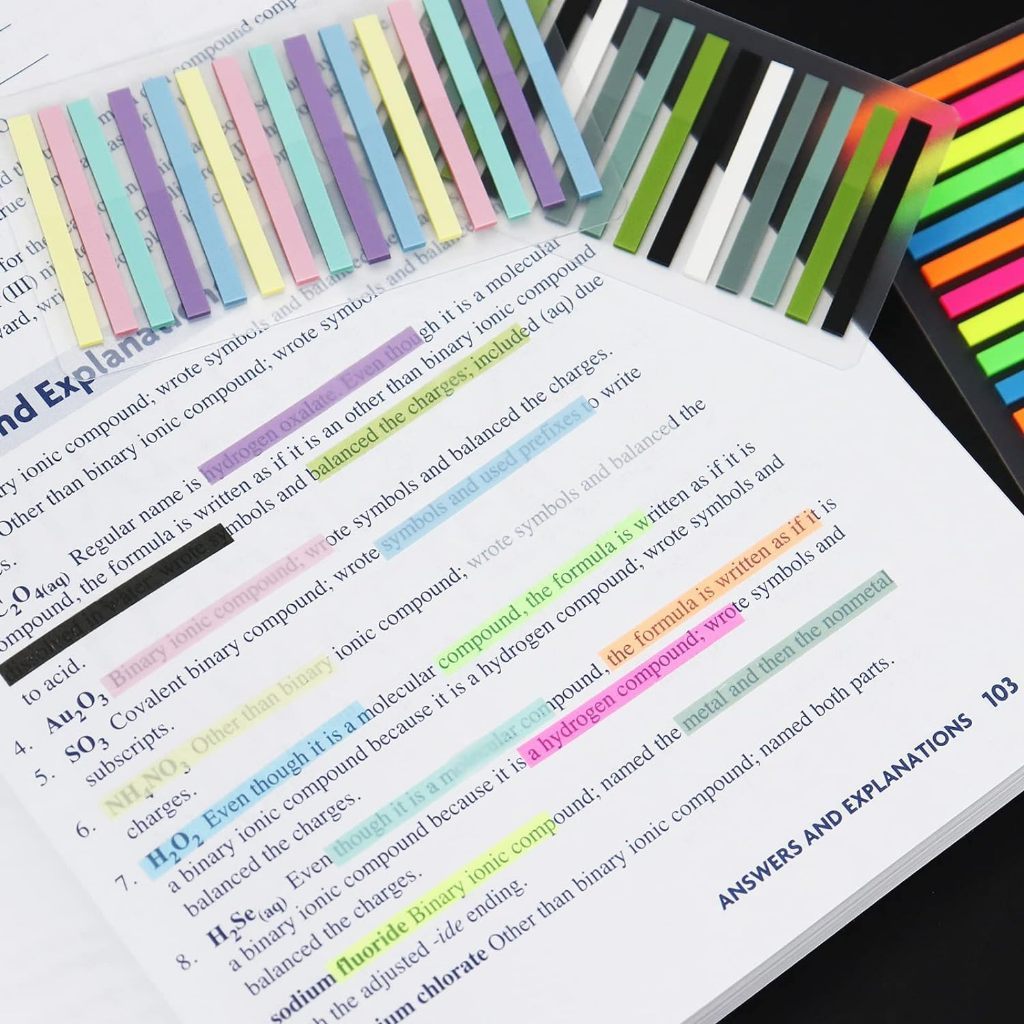 compound comp
(III)
nd Explanation
symbols and balanced
ry ionic compound; wrote symbols and balanced
Other than binary ionic compound; wrote symbols and balanced
s.
C2O4(aq) Regular name is hydrogen oxalate. Even though it is a molecular
ompound, the formula is written as if it is an other than binary ionic compound
dissolved in water; wrote symbols and balanced the charges; included (aq) due
to acid.
4. Au2O3 Binary ionic compound; wrote symbols and balanced the charges.
5. SO3 Covalent binary compound; wrote symbols and used prefixes to write
subscripts.
6. NH4NO3 Other than binary ionic compound; wrote symbols and balanced the
charges.
7. H2O2 Even though it is a molecular compound, the formula is written as if it is
a binary ionic compound because it is a hydrogen compound; wrote symbols and
balanced the charges.
8. H2Se(aq) Even though it is a molecular compound, the formula is written as if it is
a binary ionic compound because it is a hydrogen compound; wrote symbols and
balanced the charges.
sodium fluoride Binary ionic compound; named the metal and then the nonmetal
h the adjusted -ide ending.
ium chlorate Other than binary ionic compound; named both parts.
ANSWERS AND EXPLANATIONS 103